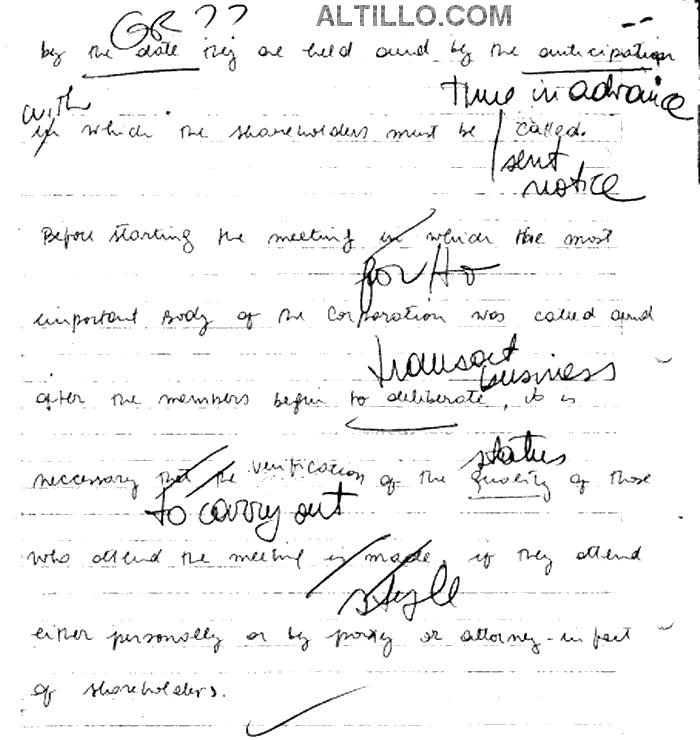 ALTILLO.COM
GR ??
by the date they are held and by the anticipation
with time in advance
in which the shareholders must be called.
sent
notice
Before starting the meeting in which the most
for/to
important Body of the Corporation was called and
transact
business
after the members begin to deliberate, it is
status
neccessary that the verification of the quality of those
to carry out
who attend the meeting is made, if they attend
style
either personally or by proxy or attorney-in fact
of shareholders.